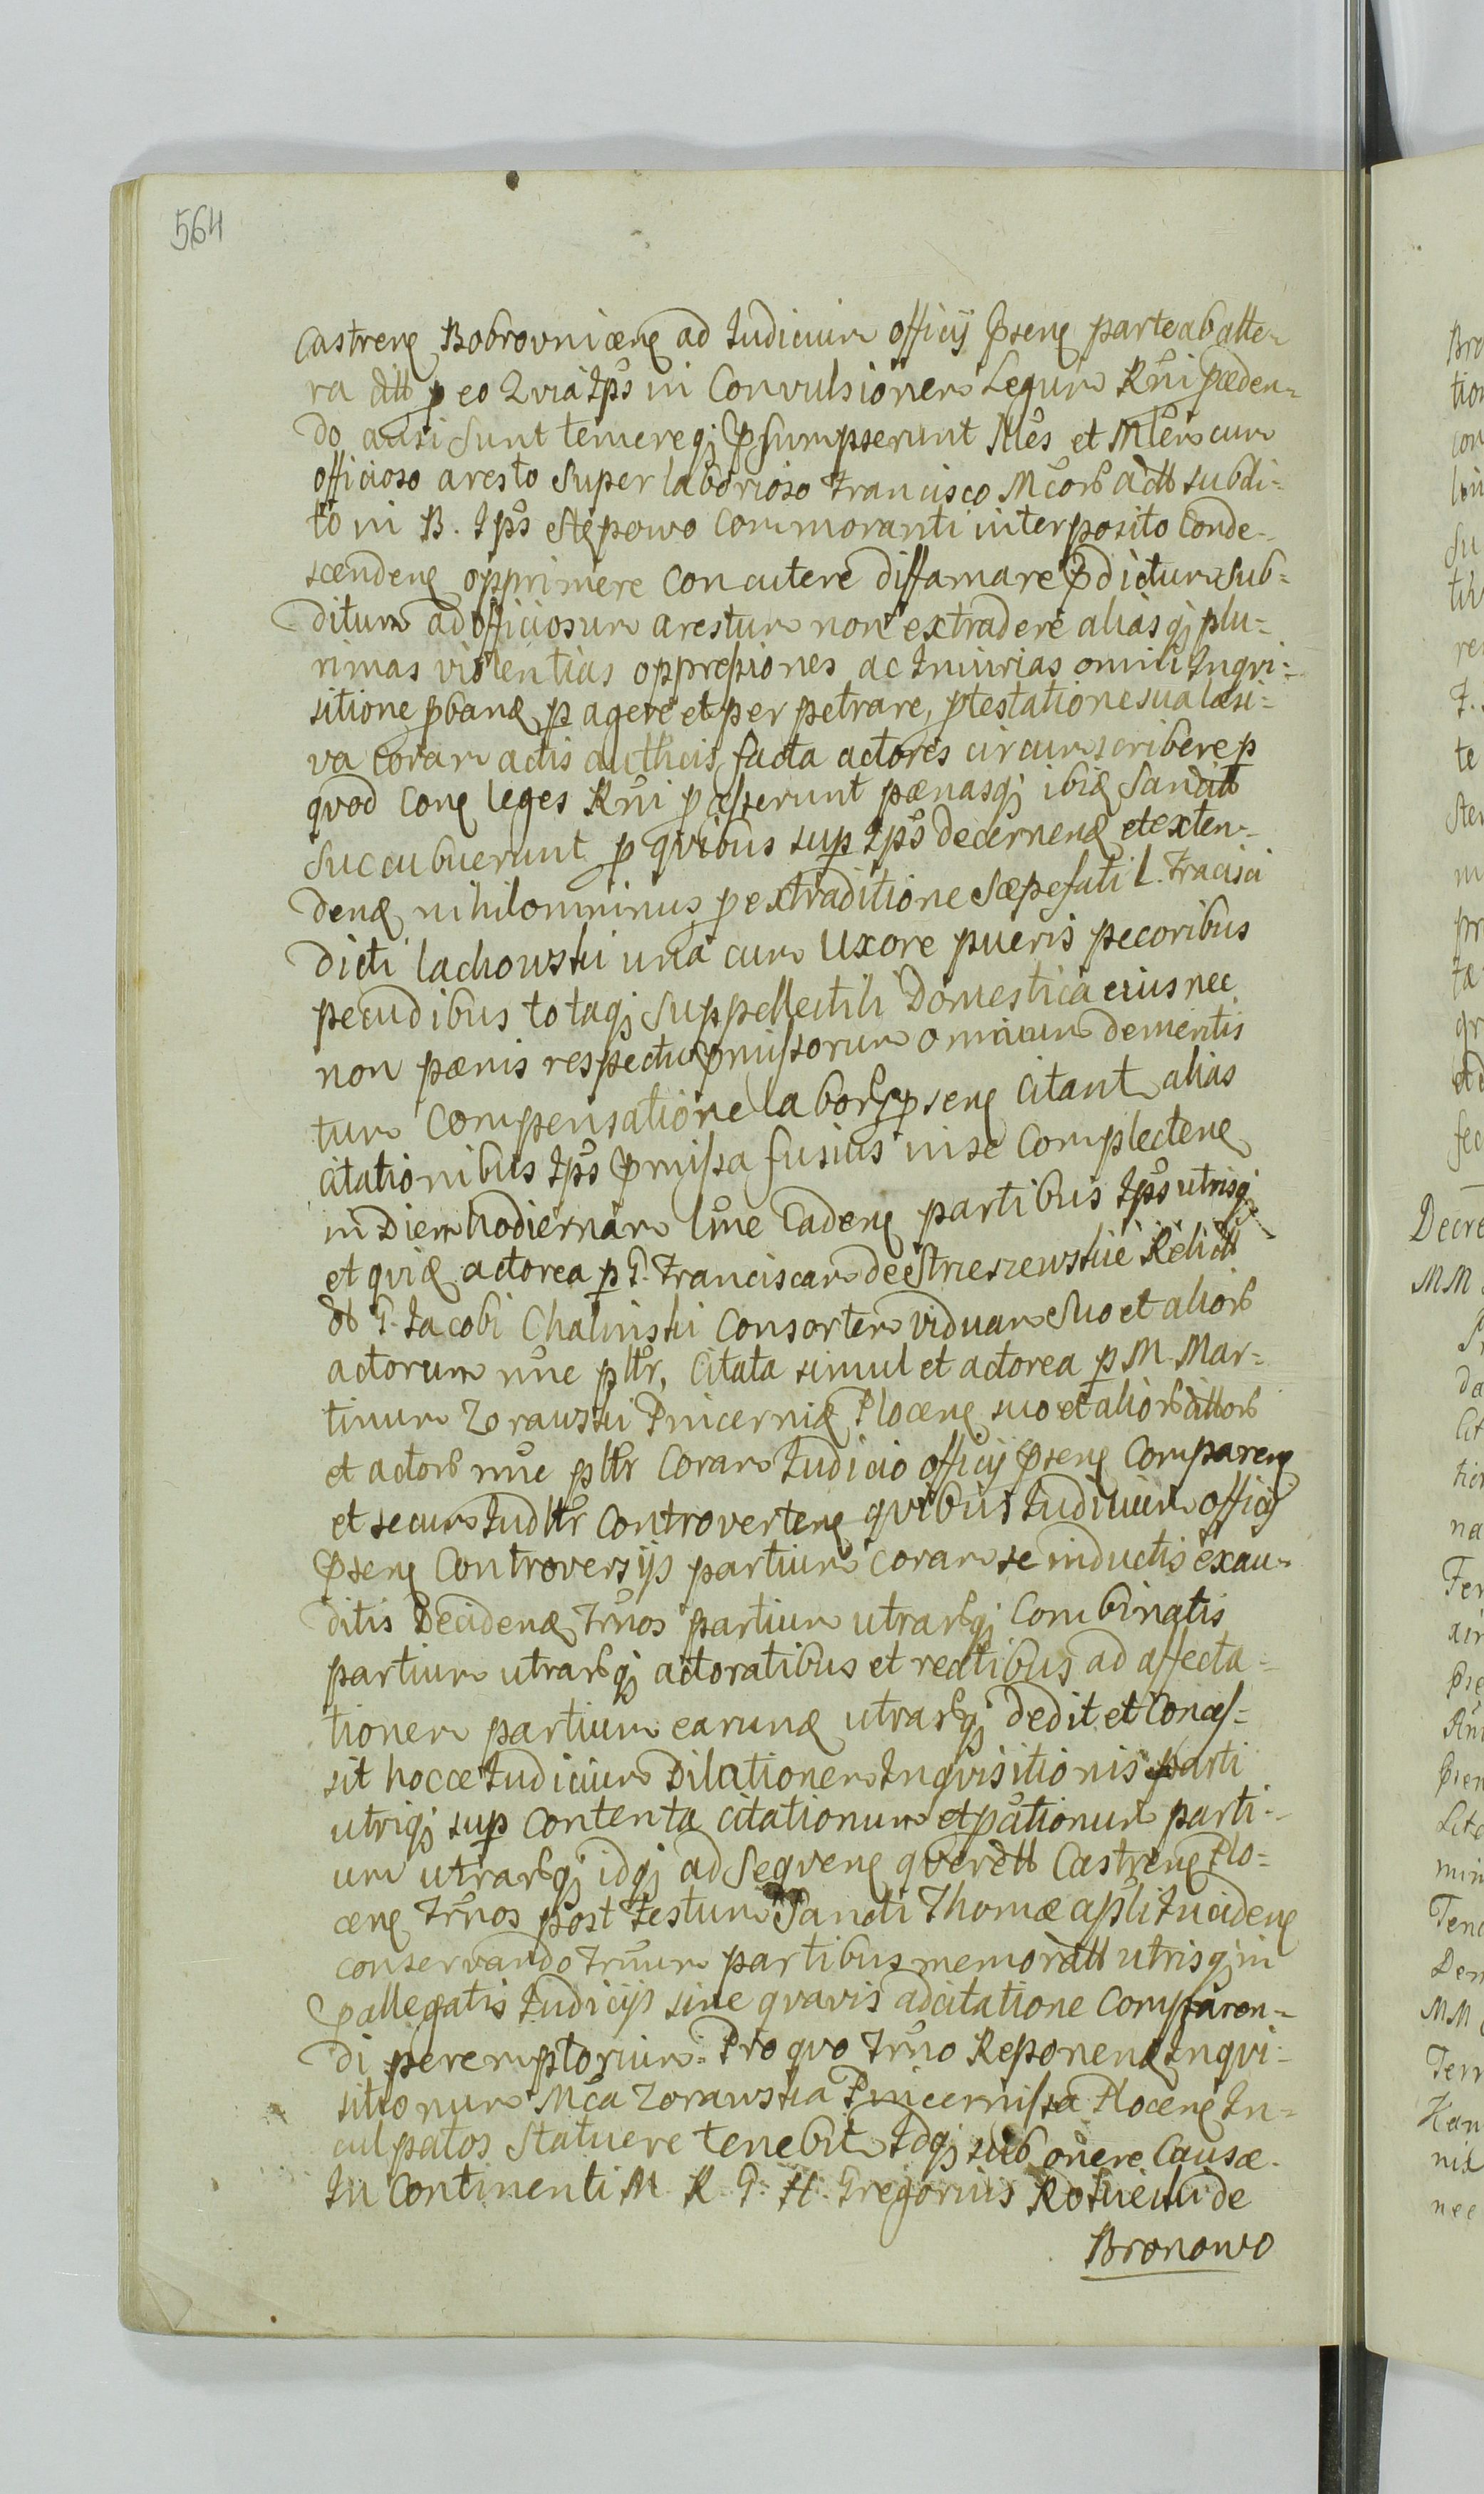 564
Castren Bobrovnicen ad Iudicium officij pñsen parte ab alte-
ra dtt p eo Qvia Ips in Convulsionem Legum Rñi pceden-
do ausi sunt temereqj psumpserunt Mles et Mlem cum
officioso aresto super laborioso Francisco Mcorb actt subdi-
to in B. Ips Stępowo commoranti interposito Conde-
scenden opprimere concutere diffamare pdictum sub-
ditum ad officiosum arestum non extradere aliasqj plu-
rimas violentias oppressiones ac Iniurias omni Inqvi-
sitione pband p agere et perpetrare, ptestatione sua læsi-
va coram actis authcis facta actores circumscribere p
qvod Con leges Rñi pcesserunt pænasqj ibid Sancitt
succubuerunt p qvibus sup Ips decernend et exten-
dend nihilominus p extraditione Sæpefati L. Fracisci
dicti Lachowski una cum Uxore pueris pecoribus
pecudibus totaqj suppellectili Domestica eius nec
non pænis respectu pmissorum omnium demerits
tum compensatione laborb psen Citant alias
citationibus Ips pmissa fusius in se complecten
in Diem hodiernam lme Caden partibus Ips utrisqj
et qvid actorea p G. Franciscam de Strzeszewskie Relictt
ot G. Iacobi Chalinski Consortem viduam suo et aliorb
actorum nñe pltr, Citata simul et actorea p M. Mar-
tinum Zorawski Pincernid Plocen suo et aliorb cittorb
et actorb nñe pltr coram Iudicio officij psen Comparen
et secum Iudltr Controverten qvibus Iudicium officij
psen Controversijs partium coram se inductis exau-
ditis Decidend Trños partium utrarbqj Combinatis
partium utrarbqj actoratibus et reatibus ad affecta-
tionem partium earund utrarbqj dedit et Conces-
sit hocce Iudicium Dilationem Inqvisitionis parti
utriqj sup contenta citationum et pationum parti-
um utrarbqj idqj ad Seqven qverett Castren Plo-
cen Trños post Festum Sancti Thomæ apli Inciden
conservando Trñum partibus memorātt utrisqj in
pallegatis Iudicijs sine qvavis adcitatione comparen-
di peremptorium. Pro qvo Trño Reponend Inqvi-
sitionum Mca Zorawska Pincernissa Plocen In-
culpatos statuere tenebit Idqj sub onere Causæ.
In Continenti M. R. G. H. Gregorius Rościcki de
Bronowo